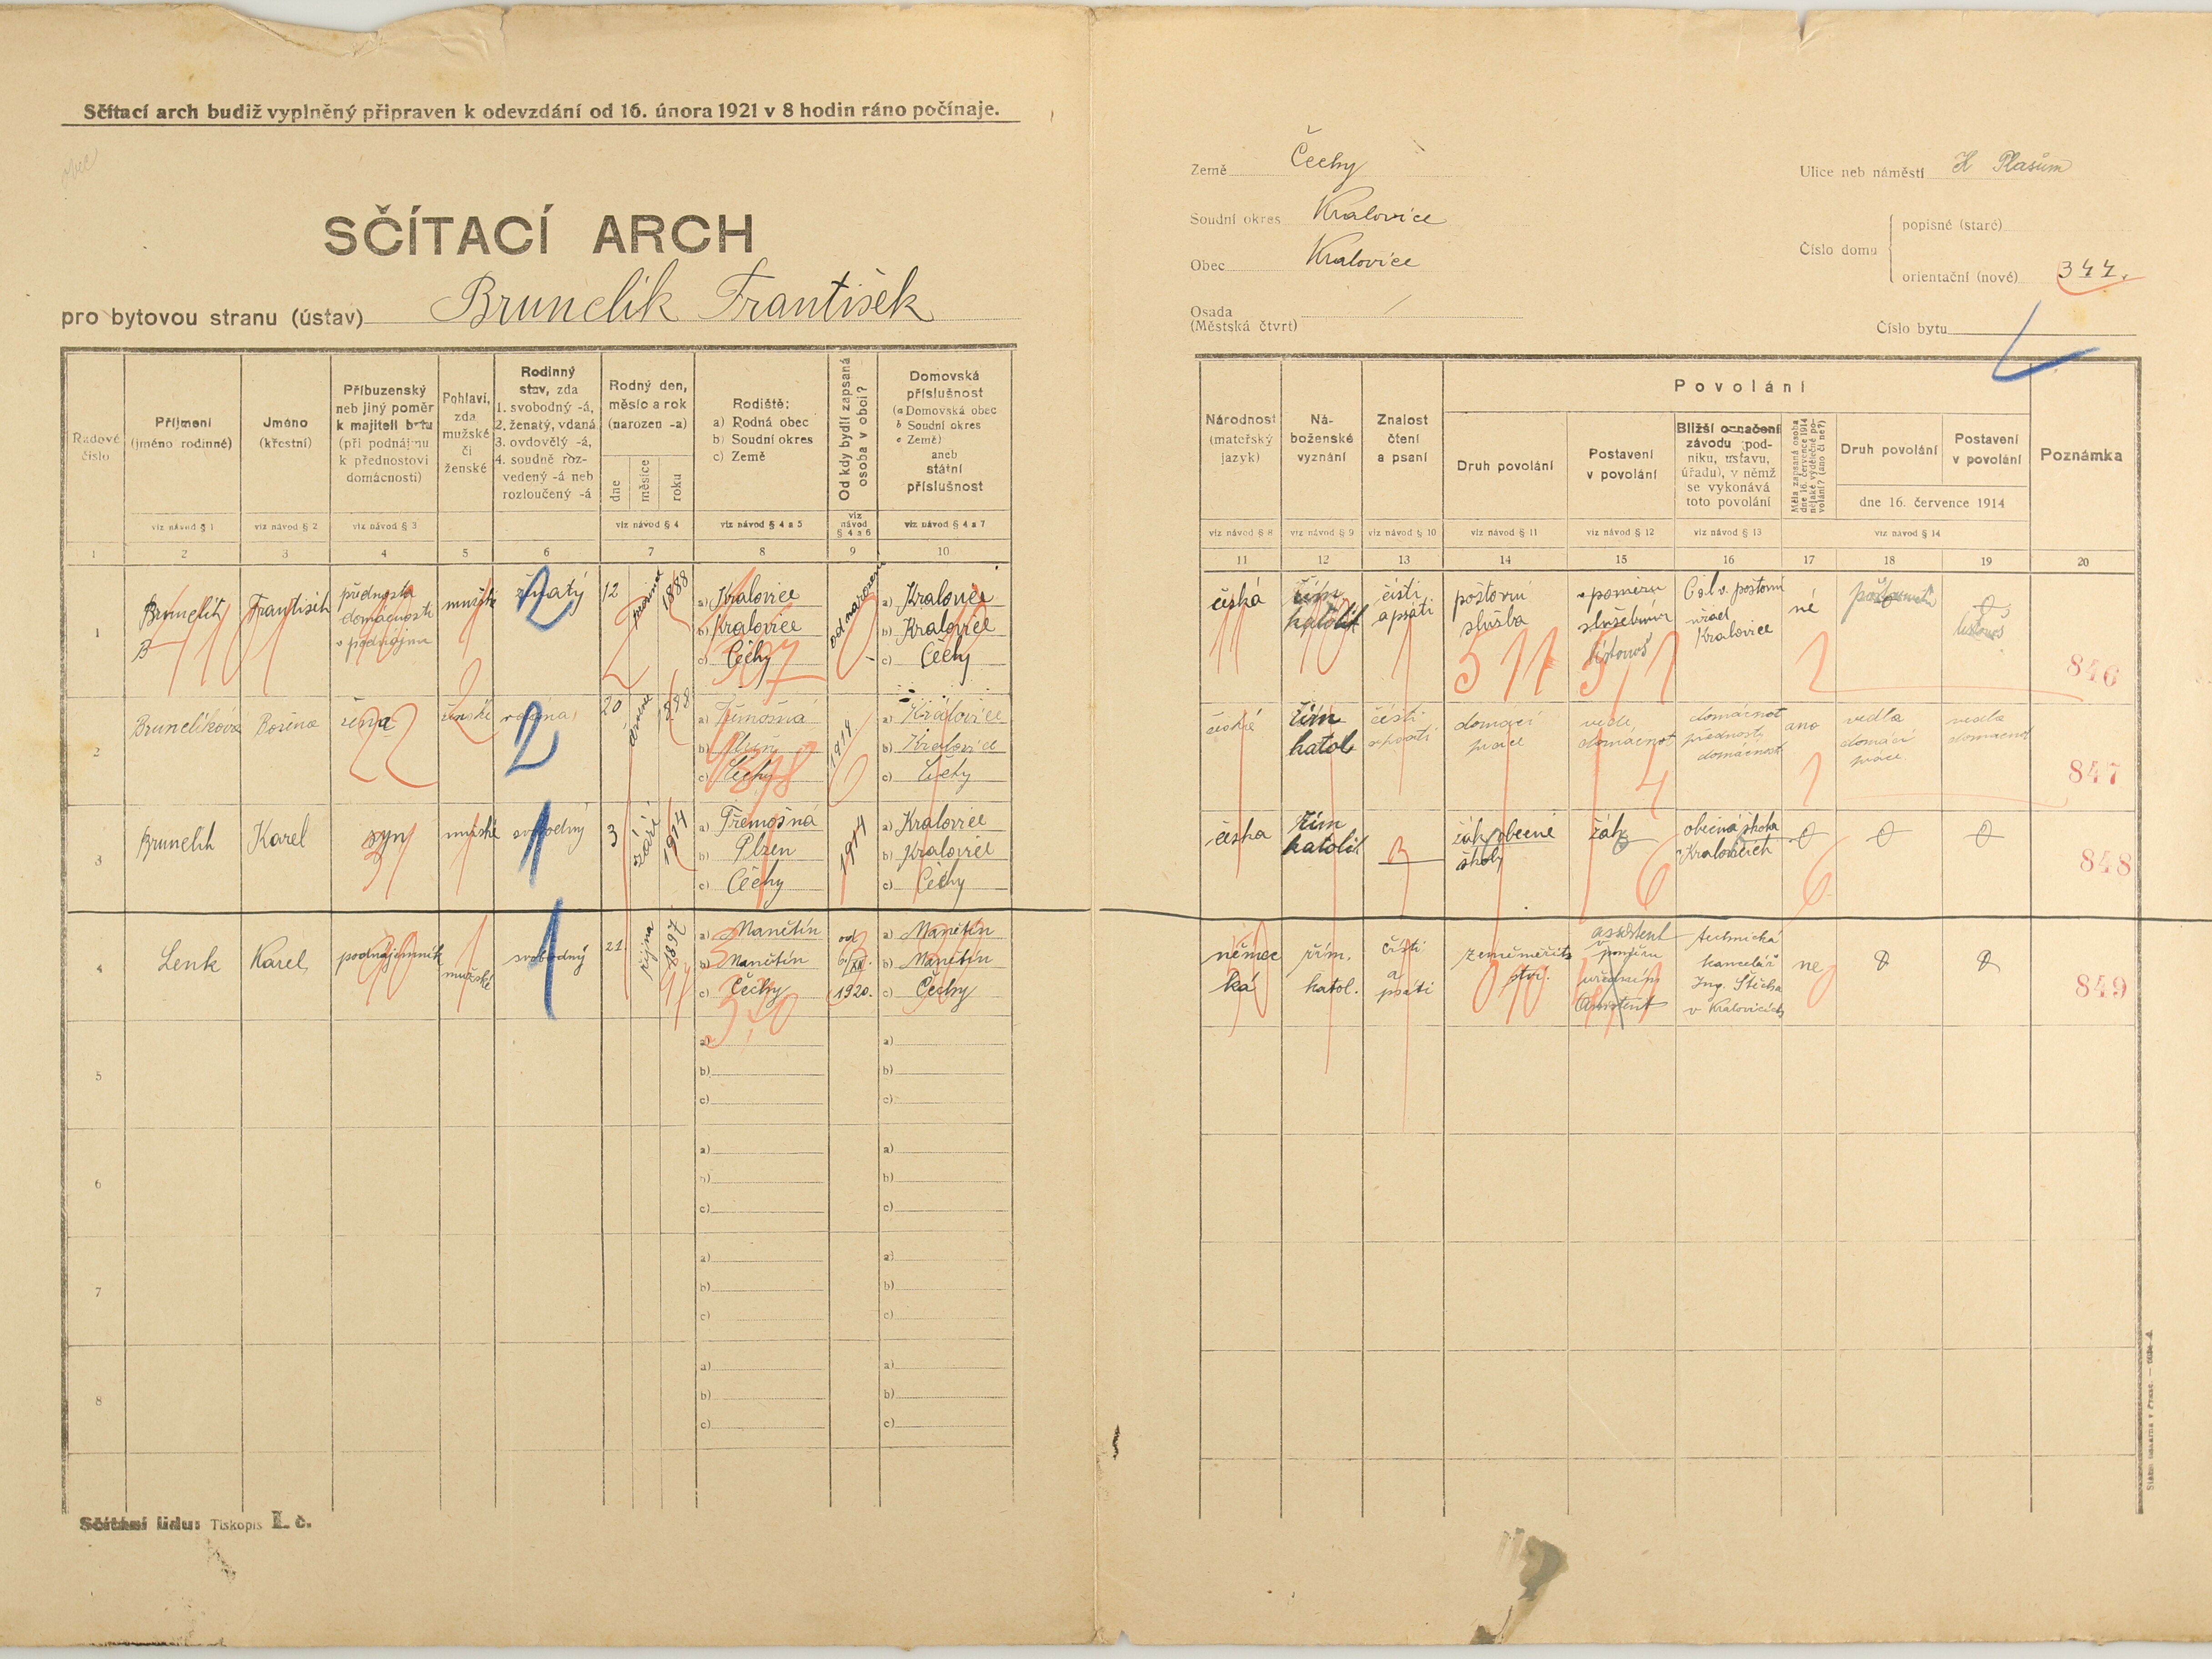 Sčítací arch budiž vyplněný připraven k odevzdání od 16. února 1921 v 8 hodin ráno počínaje.
SČÍTACÍ ARCH
pro bytovou stranu (ústav) Brunclík František
Země Čechy
Soudní okres Kralovice
Obec Kralovice
Osada
(Městská čtvrť)
Ulice neb náměstí K Plasům
Číslo domu
popisné (staré)
orientační (nové) 344.
Číslo bytu
Řadové číslo
Příjmení
(jméno rodinné)
viz návod § 1
Jméno
(křestní)
viz návod § 2
Příbuzenský
neb jiný poměr
k majiteli bytu
(při podnájmu
k přednostovi
domácnosti)
viz návod § 3
Pohlaví,
zda
mužské
či
ženské
Rodinný
stav, zda
1. svobodný -á,
2. ženatý, vdaná
3. ovdovělý -á,
4. soudně roz-
vedený -á neb
rozloučený -á
Rodný den,
měsíc a rok
(narozen -a)
dne
měsíce
roku
viz návod § 4
Rodiště:
a) Rodná obec
b) Soudní okres
c) Země
viz návod § 4 a 5
Od kdy bydlí zapsaná
osoba v obci?
viz
návod
§ 4 a 6
Domovská
příslušnost
(a Domovská obec
b Soudní okres
c Země)
aneb
státní
příslušnost
viz návod § 4 a 7
Národnost
(mateřský
jazyk)
viz návod § 8
Ná-
boženské
vyznání
viz návod § 9
Znalost
čtení
a psaní
viz návod § 10
Povolání
Druh povolání
viz návod § 11
Postavení
v povolání
viz návod § 12
Bližší označení
závodu (pod-
niku, ústavu,
úřadu), v němž
se vykonává
toto povolání
viz návod § 13
Měla zapsaná osoba
dne 16. července 1914
nějaké výdělečné po-
volání? (ano či ne?)
Druh povolání
Postavení
v povolání
dne 16. července 1914
viz návod § 14
Poznámka
1 2 3 4 5 6 7 8 9 10 11 12 13 14 15 16 17 18 19 20
1 Brunclík František
přednosta
domácnosti
v podnájmu
mužské ženatý 12 prosince 1888
a) Kralovice
b) Kralovice
c) Čechy
od narození
a) Kralovice
b) Kralovice
c) Čechy
česká
řím
katolík
čísti
a psáti
poštovní
služba
v poměru
služebním
listonoš
Čsl. poštovní
úřad
Kralovice
né
listonoš
846
2 Brunclíková Rosina žena ženské vdaná 20 1898
a) Třemošná
b) Plzeň
c) Čechy
1914
a) Kralovice
b) Kralovice
c) Čechy
česká
řím
katol
čísti
a psáti
domácí
práce
vede
domácnost
domácnost
přednosty
domácnosti
ano
vedla
domácí
práce
vedla
domácnost
847
3 Brunclík Karel syn mužské svobodný 3 září 1914
a) Třemošná
b) Plzeň
c) Čechy
1914
a) Kralovice
b) Kralovice
c) Čechy
česka
řím
katolík
žák obecné
školy
žák
obecná škola
v Kralovicích
0 0 0
848
4 Lenk Karel podnájemník mužské svobodný 21. října 1897
a) Manětín
b) Manětín
c) Čechy
od
1920.
a) Manětín
b) Manětín
c) Čechy
němec
ká
řím.
katol.
čísti
a
psáti
zeměměřičs
ství.
assistent
v poměru
úřednickém
Assistent
technická
kancelář
Ing. Štícha
v Kralovicích
ne
0 0
849
5
a) a)
b) b)
c) c)
6
a) a)
b) b)
c) c)
7
a) a)
b) b)
c) c)
8
a) a)
b) b)
c) c)
Sčítání lidu: Tiskopis I. č.